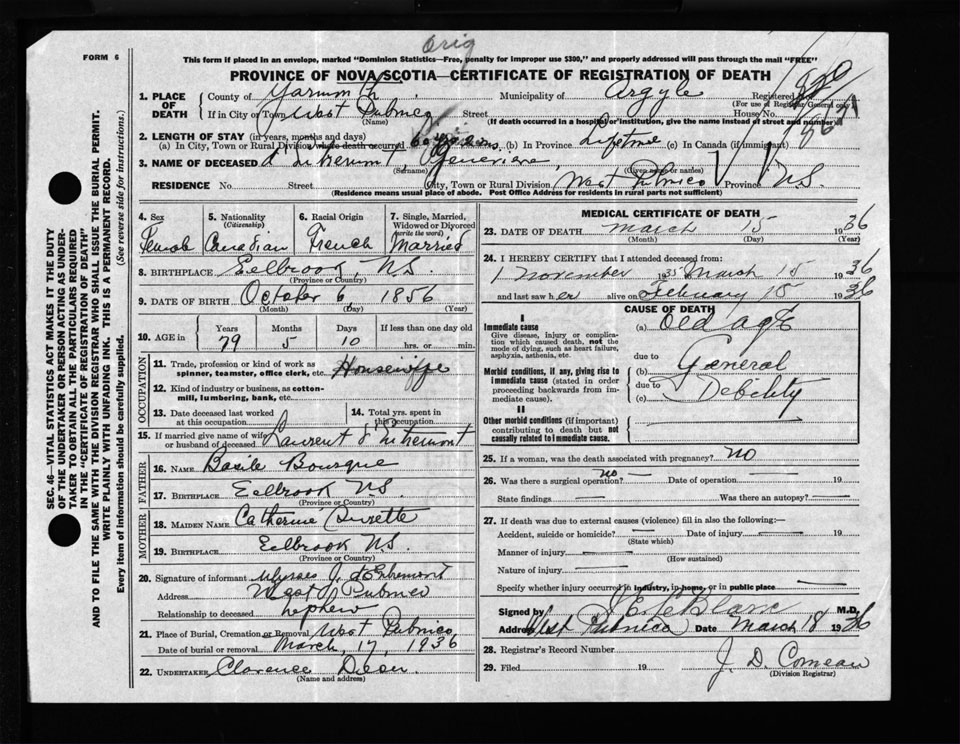 orig
FORM 6
This form if placed in an envelope, marked "Dominion Statistics—Free, penalty for improper use $300," and properly addressed will pass through the mail "FREE"
PROVINCE OF NOVA SCOTIA—CERTIFICATE OF REGISTRATION OF DEATH
1. PLACE OF DEATH County of Yarmouth Municipality of Argyle Registered
(For use of Registrar General only)
If in City or Town West Pubnico Street House No.
(Name) (If death occurred in a hospital or institution, give the name instead of street and number)
2. LENGTH OF STAY (in years, months and days)
(a) In City, Town or Rural Division where death occurred (b) In Province Lifetime (c) In Canada (if immigrant)
3. NAME OF DECEASED d'Entremont, Genevieve
(Surname) (Given name or names)
RESIDENCE No. Street City, Town or Rural Division West Pubnico Province N.S.
(Residence means usual place of abode. Post Office Address for residents in rural parts not sufficient)
SEC. 46—VITAL STATISTICS ACT MAKES IT THE DUTY
OF THE UNDERTAKER OR PERSON ACTING AS UNDER-
TAKER TO OBTAIN ALL THE PARTICULARS REQUIRED
IN THE "CERTIFICATE OF REGISTRATION OF DEATH"
AND TO FILE THE SAME WITH THE DIVISION REGISTRAR WHO SHALL ISSUE THE BURIAL PERMIT.
WRITE PLAINLY WITH UNFADING INK. THIS IS A PERMANENT RECORD.
Every item of information should be carefully supplied. (See reverse side for instructions.)
4. Sex 5. Nationality 6. Racial Origin 7. Single, Married,
(Citizenship) Widowed or Divorced
(write the word)
Female Canadian French Married
8. BIRTHPLACE Eelbrook, N.S.
(Province or Country)
9. DATE OF BIRTH October 6, 1856
(Month) (Day) (Year)
10. AGE in Years Months Days If less than one day old
79 5 10 hrs. or min.
OCCUPATION
11. Trade, profession or kind of work as
spinner, teamster, office clerk, etc. Housewife
12. Kind of industry or business, as cotton-
mill, lumbering, bank, etc.
13. Date deceased last worked
at this occupation
14. Total yrs. spent in
this occupation
15. If married give name of wife
or husband of deceased Laurent d'Entremont
FATHER
16. NAME Basile Bourque
17. BIRTHPLACE Eelbrook N.S.
(Province or Country)
MOTHER
18. MAIDEN NAME Catherine
19. BIRTHPLACE Eelbrook N.S.
(Province or Country)
20. Signature of informant Ulysses J. d'Entremont
Address West Pubnico
Relationship to deceased nephew
21. Place of Burial, Cremation or Removal West Pubnico
Date of burial or removal March, 17, 1936
22. UNDERTAKER Clarence
(Name and address)
MEDICAL CERTIFICATE OF DEATH
23. DATE OF DEATH March 15 1936
(Month) (Day) (Year)
24. I HEREBY CERTIFY that I attended deceased from:
1 November 1935 March 15 1936
and last saw her alive on February 15 1936
CAUSE OF DEATH
I
Immediate cause
Give disease, injury or complica-
tion which caused death, not the
mode of dying, such as heart failure,
asphyxia, asthenia, etc.
(a) Old age
due to
Morbid conditions, if any, giving rise to
immediate cause (stated in order
proceeding backwards from im-
mediate cause).
(b) General
due to
(c) Debility
II
Other morbid conditions (if important)
contributing to death but not
causally related to immediate cause.
25. If a woman, was the death associated with pregnancy? no
26. Was there a surgical operation? no Date of operation 19
State findings Was there an autopsy?
27. If death was due to external causes (violence) fill in also the following:—
Accident, suicide or homicide? Date of injury 19
(State which)
Manner of injury
(How sustained)
Nature of injury
Specify whether injury occurred in industry, in home, or in public place
Signed by LeBlanc M.D.
Address West Pubnico Date March 18 1936
28. Registrar's Record Number
29. Filed 19 J. D. Comeau
(Division Registrar)